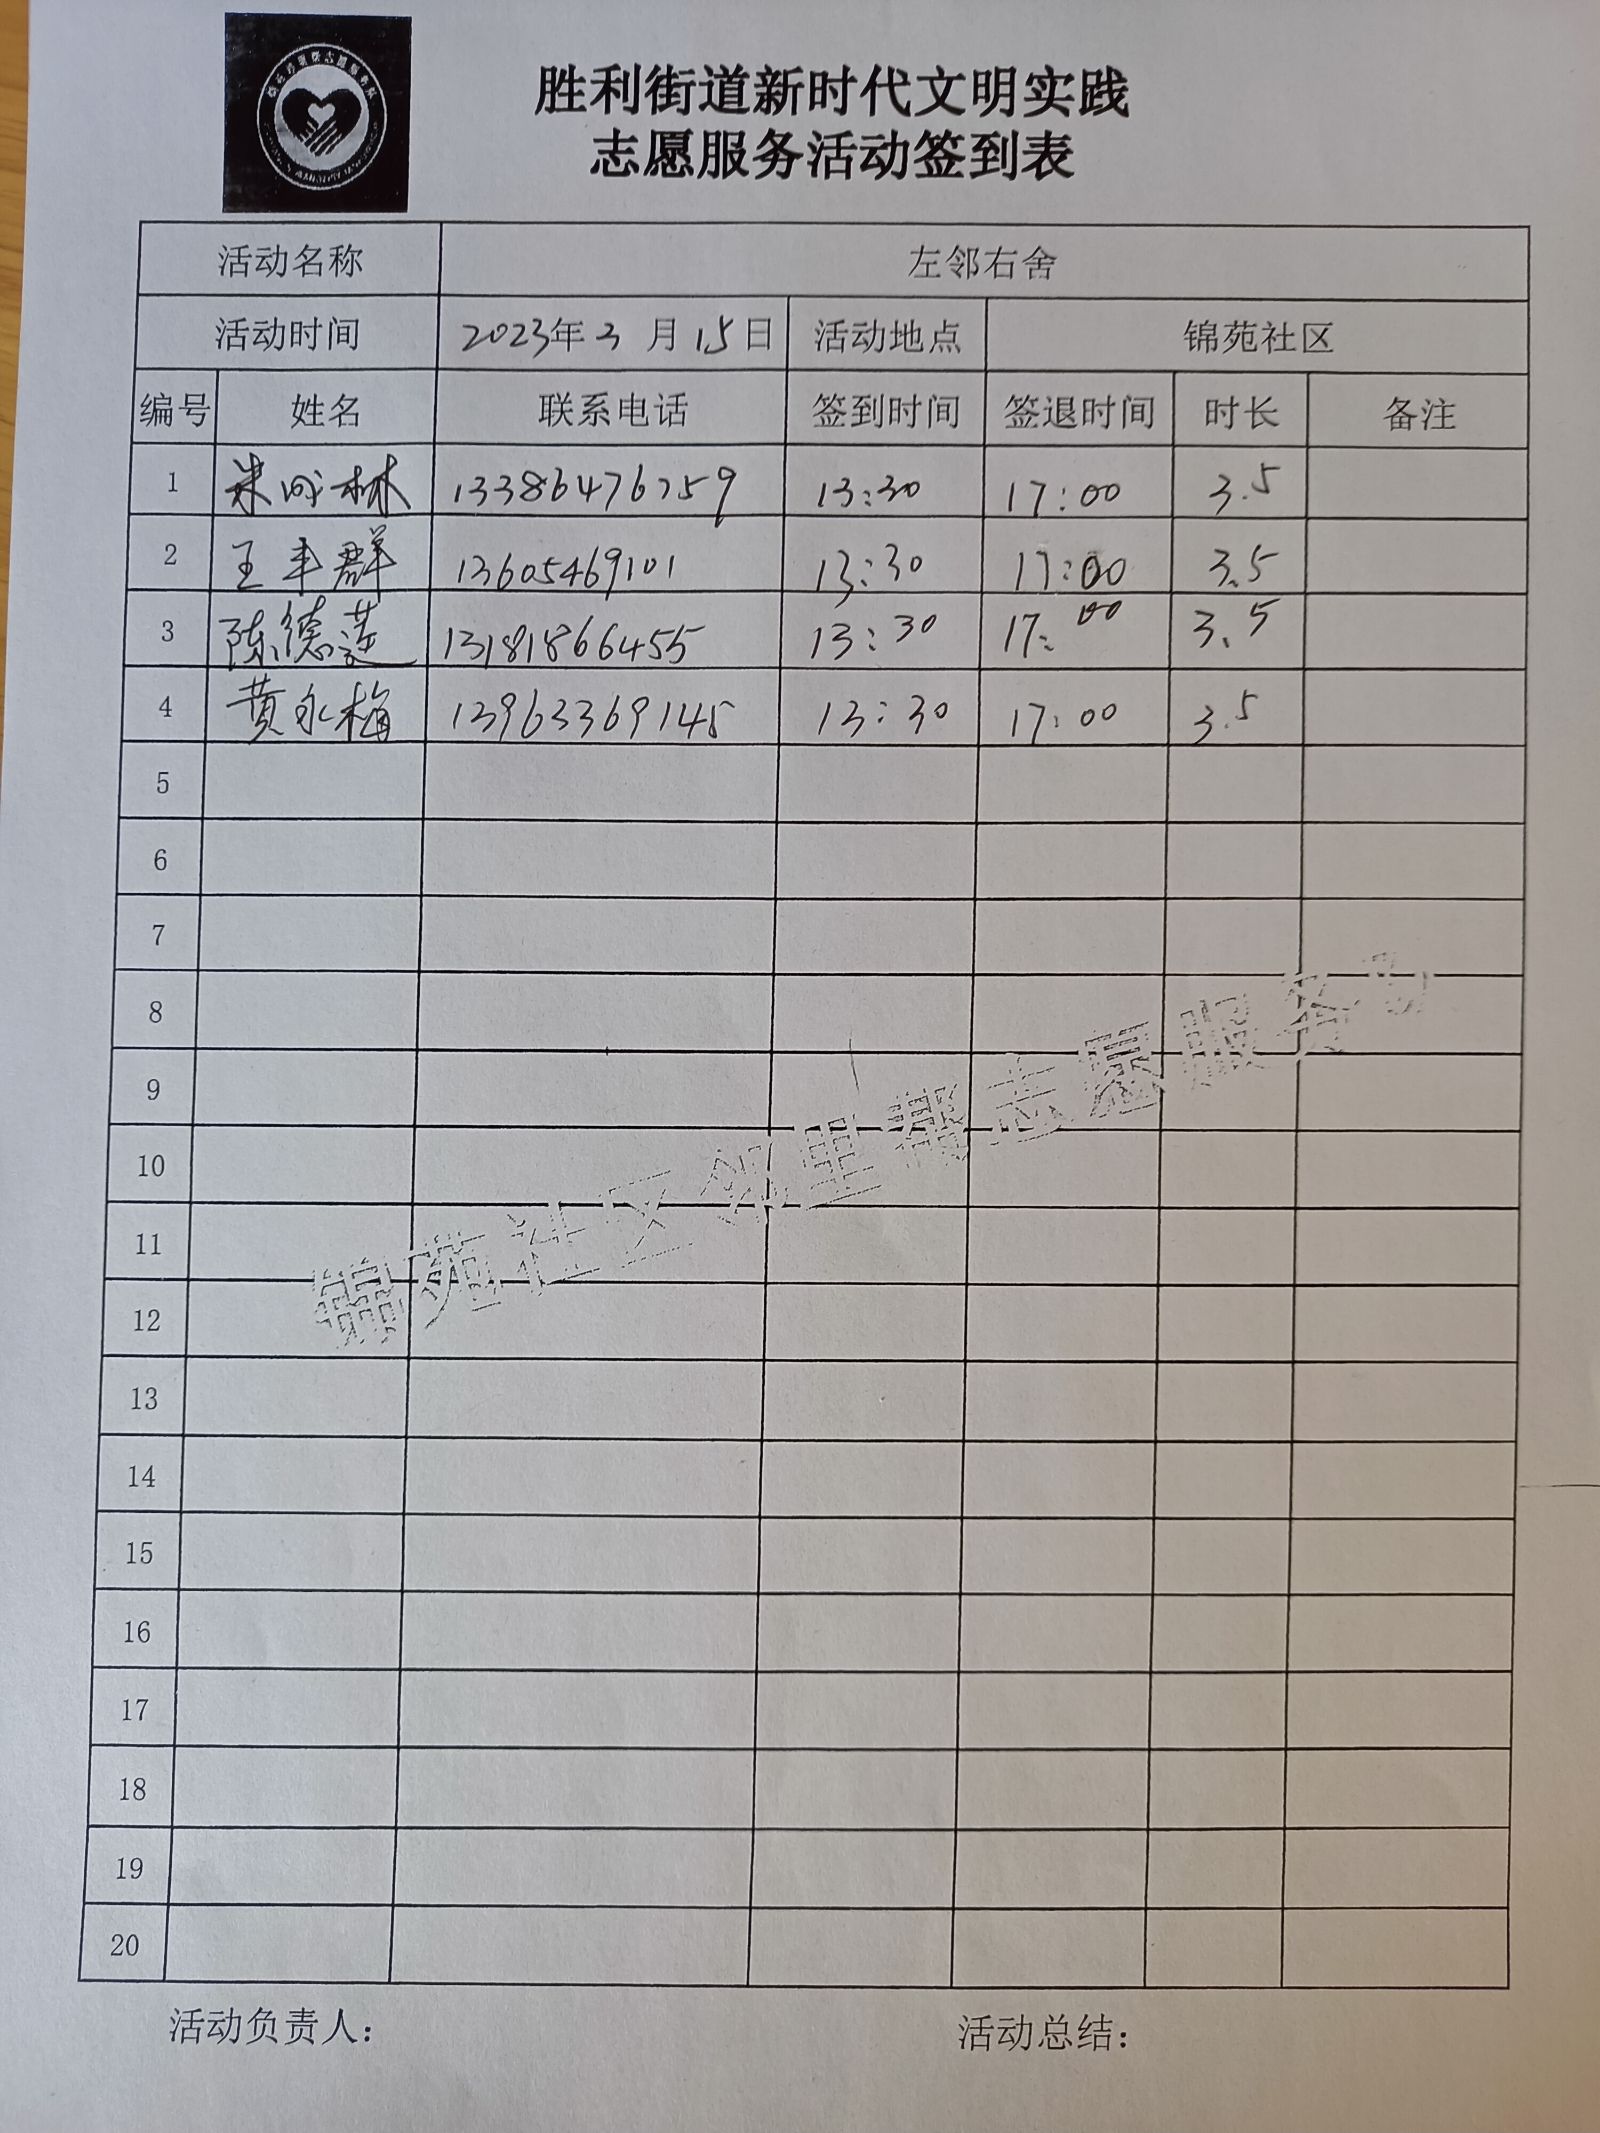 胜利街道新时代文明实践
志愿服务活动签到表
活动名称 左邻右舍
活动时间 2023年3月15日 活动地点 锦苑社区
编号 姓名 联系电话 签到时间 签退时间 时长 备注
1 朱成林 13386476759 13:30 17:00 3.5
2 王丰群 13605469101 13:30 17:00 3.5
3 陈德莲 13181866455 13:30 17:00 3.5
4 黄永梅 13963369145 13:30 17:00 3.5
5
6
7
8
9
10
11
12
13
14
15
16
17
18
19
20
锦苑社区邻里帮志愿服务队
活动负责人： 活动总结：